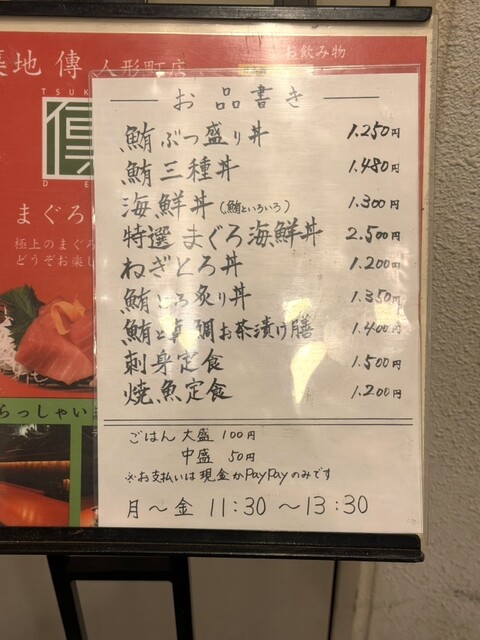 地 傳 人形町店
お飲み物
TSUK
DE
まぐろ
極上のまぐろ
どうぞお楽し
らっしゃい
お品書き
鮪ぶつ盛り丼 1.250円
鮪三種丼 1.480円
海鮮丼(鮪といろいろ) 1.300円
特選 まぐろ海鮮丼 2.500円
ねぎとろ丼 1.200円
鮪とろ炙り丼 1.350円
鮪と真鯛お茶漬け膳 1.400円
刺身定食 1.500円
焼魚定食 1.200円
ごはん 大盛 100円
中盛 50円
※お支払いは現金かPayPayのみです
月～金 11:30～13:30